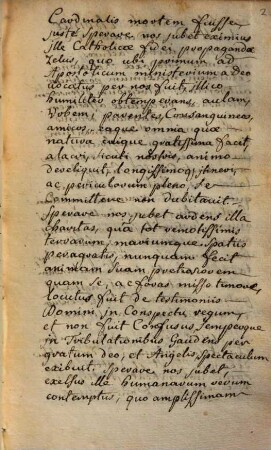 2
Cardinalis mortem fuisse
justè sperare nos jubet eximius
ille Catholicæ fidei propagandæ
Zelus, quo ubi primum ad
Apostolicum ministerium a Deo
vocatus per nos fuit, illico
humiliter obtemperans, aulam,
Urbem, parentes, Consanguineos,
amicos, eaque omnia quæ
natura cuique gratissima facit,
alacri, sicuti nostris, animo
dereliquit, longissimoq; itineri,
ac periculorum pleno, se
Committere non dubitavit.
Sperare nos jubet ardens illa
charitas, qua tot remotissimis
terrarum, mariumque spatiis
peragratis, nunquam fecit
animam suam pretiosiorem
quam se, ac foras misso timore,
locutus fuit de testimoniis
Domini in Conspectu regum,
et non fuit Confusus, semperque
in Tribulationibus Gaudens per
gratum Deo, et Angelis spectaculum
exibuit. Sperare nos jubet,
excelsus ille humanarum rerum
contemptus, quo amplissimam